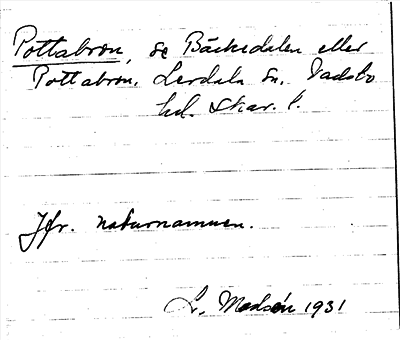 Pottabron, se Bäckedalen eller
Pottabron. Lerdala sn. Vadsbo
hd. Skar. l.
Jfr. naturnamnen.
L. Modsén 1931